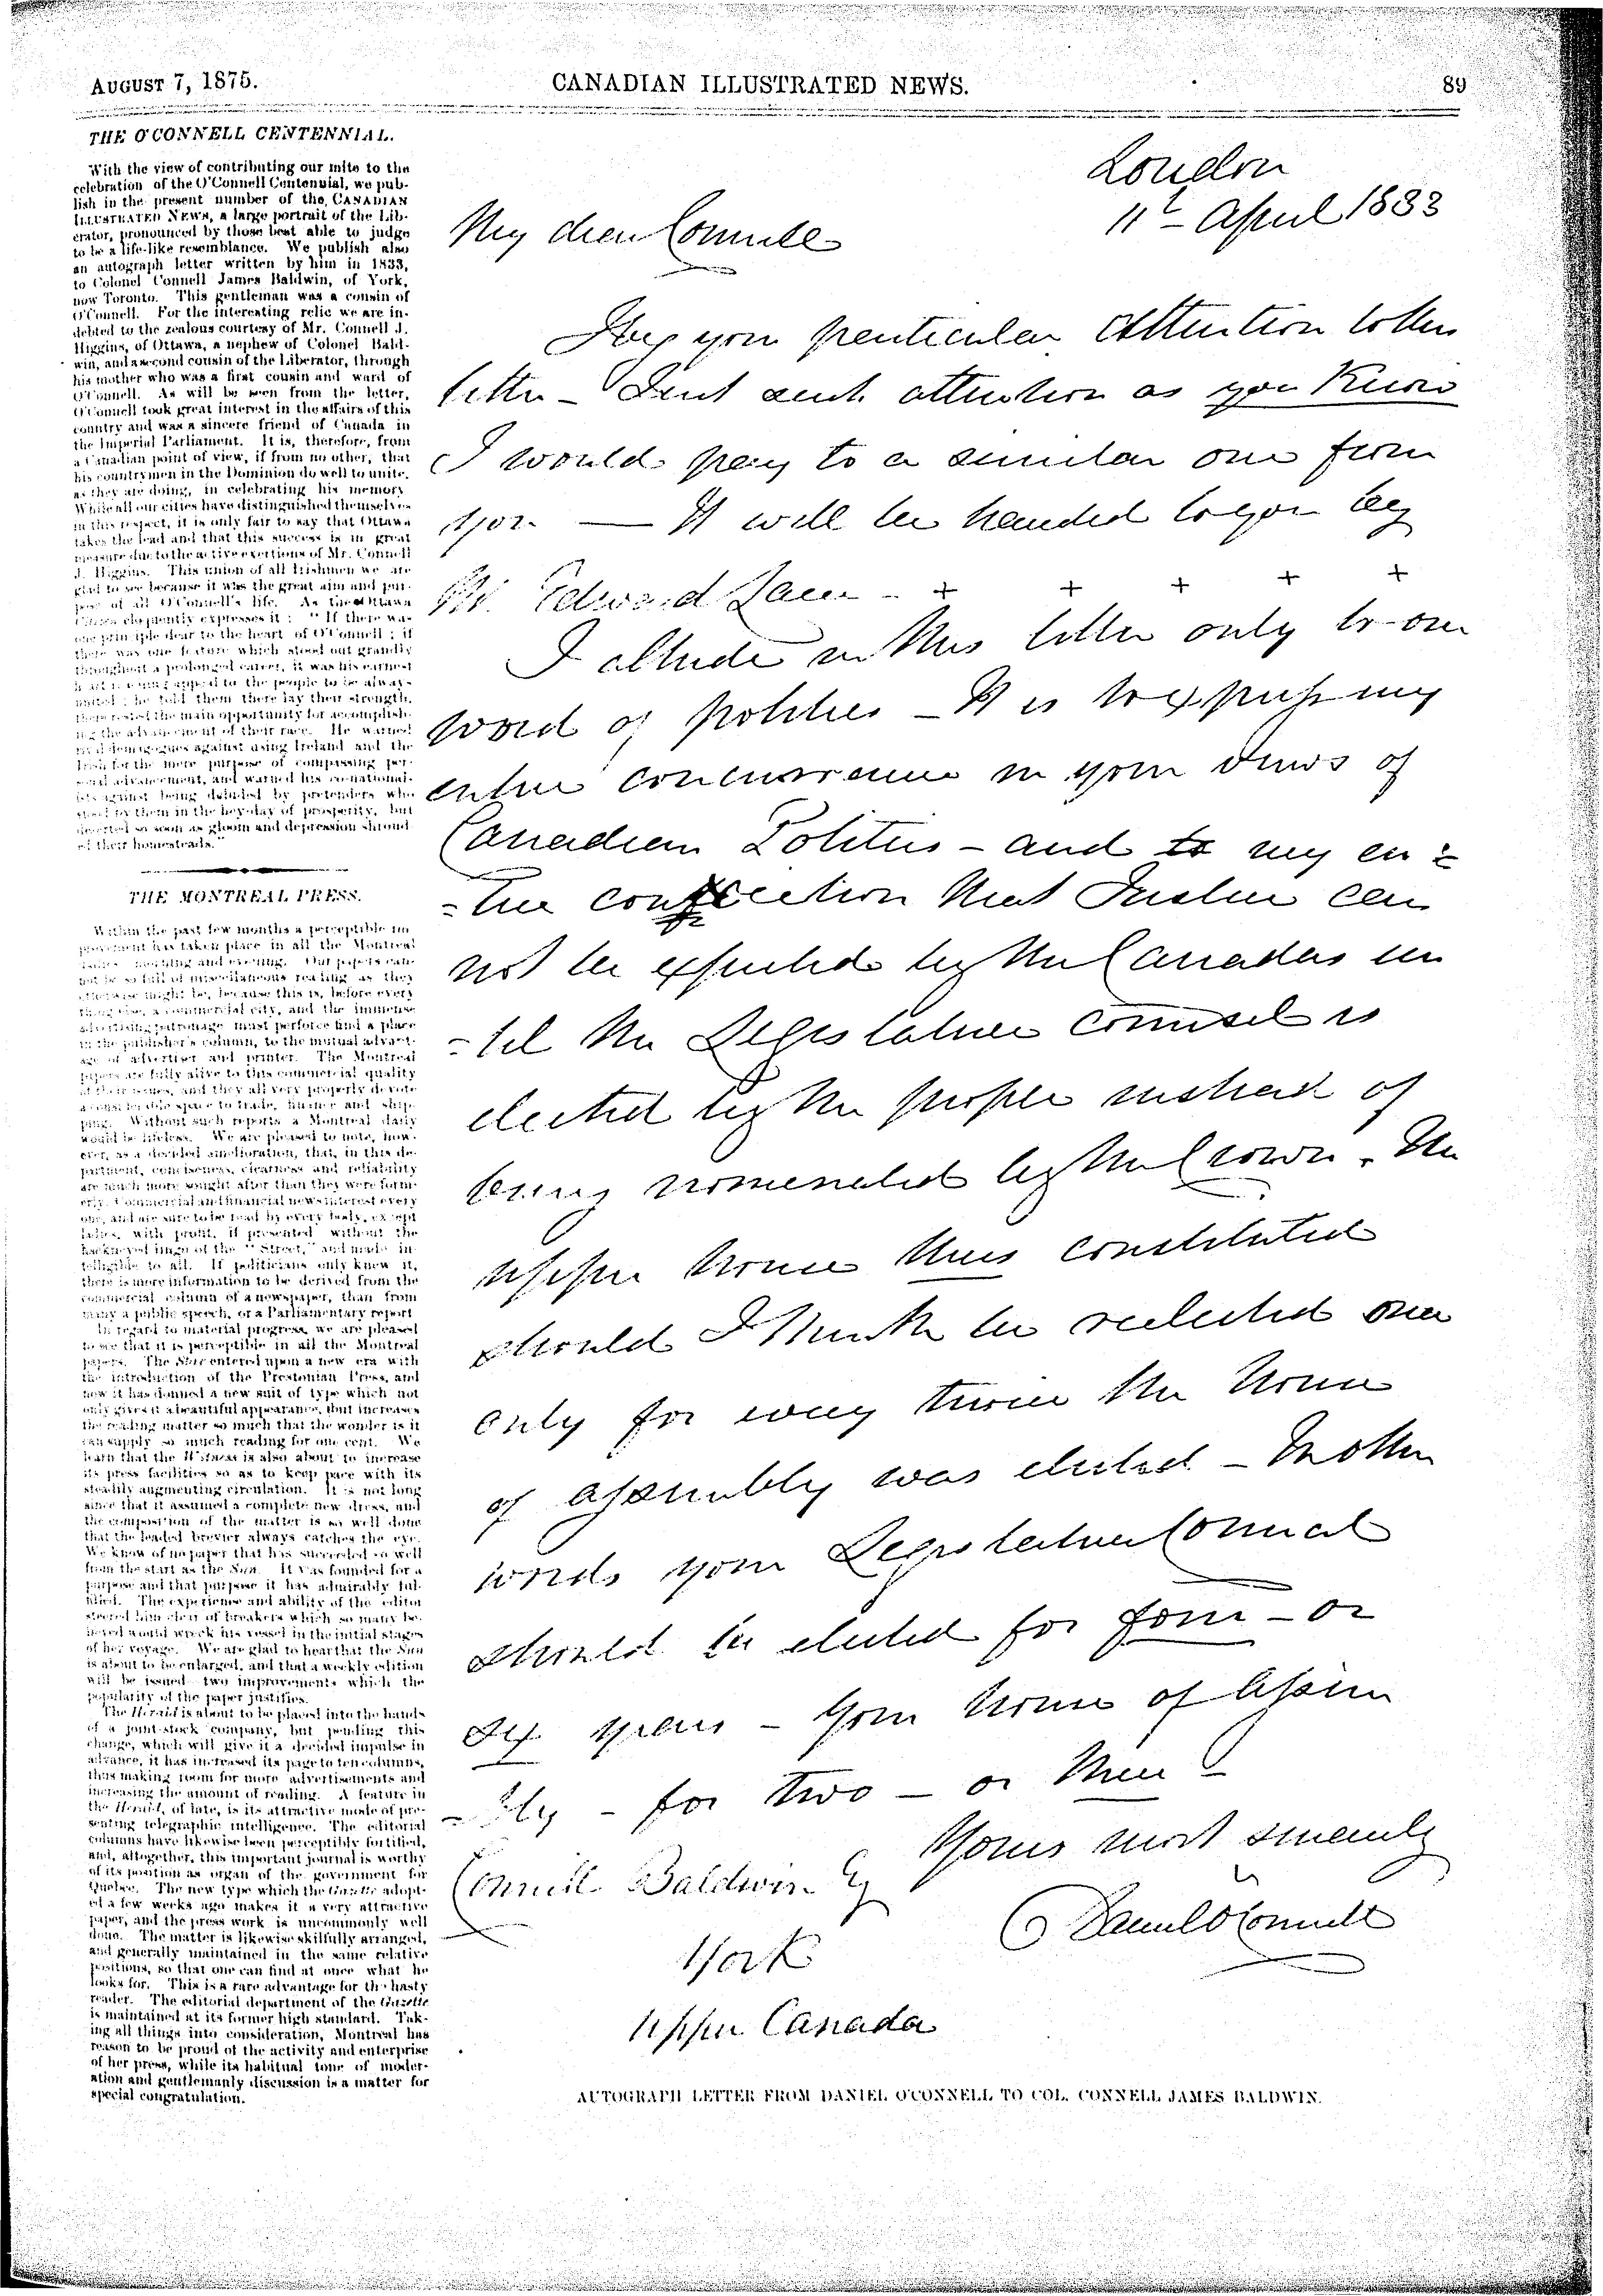 AUGUST 7, 1875.
CANADIAN ILLUSTRATED NEWS.
89
THE O'CONNELL CENTENNIAL.
With the view of contributing our mite to the
celebration of the O'Connell Centennial, we pub-
lish in the present number of the CANADIAN
ILLUSTRATED NEWS, a large portrait of the Lib-
erator, pronounced by those best able to judge
to be a life-like resemblance. We publish also
an autograph letter written by him in 1833,
to Colonel Connell James Baldwin, of York,
now Toronto. This gentleman was a cousin of
O'Connell. For the interesting relic we are in-
debted to the zealous courtesy of Mr. Connell J.
Higgins, of Ottawa, a nephew of Colonel Bald-
win, and a second cousin of the Liberator, through
his mother who was a first cousin and ward of
O'Connell. As will be seen from the letter,
O'Connell took great interest in the affairs of this
country and was a sincere friend of Canada in
the Imperial Parliament. It is, therefore, from
a Canadian point of view, if from no other, that
his countrymen in the Dominion do well to unite,
as they are doing, in celebrating his memory
While all our cities have distinguished themselves
in this respect, it is only fair to say that Ottawa
takes the lead and that this success is in great
measure due to the active exertions of Mr. Connell
J. Higgins. This union of all Irishmen we are
glad to see because it was the great aim and pur-
pose of all O'Connell's life. As the Ottawa
Citizen eloquently expresses it : "If there was
one principle dear to the heart of O'Connell ; if
there was one feature which stood out grandly
throughout a prolonged career, it was his earnest
appeal to the people to be always
united ; he told them there lay their strength,
there rested the main opportunity for accomplish-
ing the advancement of their race. He warned
demagogues against using Ireland and the
Irish for the mere purpose of compassing per-
sonal advancement, and warned his co-national-
ists against being deluded by pretenders who
stood by them in the heyday of prosperity, but
deserted so soon as gloom and depression shroud-
ed their homesteads."
THE MONTREAL PRESS.
Within the past few months a perceptible im-
provement has taken place in all the Montreal
dailies morning and evening. Our papers can-
not be so full of miscellaneous reading as they
otherwise might be, because this is, before every
thing else, a commercial city, and the immense
advertising patronage must perforce find a place
in the publisher's column, to the mutual advant-
age of advertiser and printer. The Montreal
papers are fully alive to this commercial quality
of their issues, and they all very properly devote
a considerable space to trade, finance and ship-
ping. Without such reports a Montreal daily
would be lifeless. We are pleased to note, how-
ever, as a decided amelioration, that, in this de-
partment, conciseness, clearness and reliability
are much more sought after than they were form-
erly. Commercial and financial news interest every
one, and are sure to be read by every body, except
ladies, with profit, if presented without the
hackneyed lingo of the "Street," and made in-
telligible to all. If politicians only knew it,
there is more information to be derived from the
commercial column of a newspaper, than from
many a public speech, or a Parliamentary report
In regard to material progress, we are pleased
to see that it is perceptible in all the Montreal
papers. The Star entered upon a new era with
the introduction of the Prestonian Press, and
now it has donned a new suit of type which not
only gives it a beautiful appearance, but increases
the reading matter so much that the wonder is it
can supply so much reading for one cent. We
learn that the Witness is also about to increase
its press facilities so as to keep pace with its
steadily augmenting circulation. It is not long
since that it assumed a complete new dress, and
the composition of the matter is so well done
that the leaded brevier always catches the eye.
We know of no paper that has succeeded so well
from the start as the Sun. It was founded for a
purpose and that purpose it has admirably ful-
filled. The experience and ability of the editor
steered him clear of breakers which so many be-
lieved would wreck his vessel in the initial stages
of her voyage. We are glad to hear that the Sun
is about to be enlarged, and that a weekly edition
will be issued two improvements which the
popularity of the paper justifies.
The Herald is about to be placed into the hands
of a joint-stock company, but pending this
change, which will give it a decided impulse in
advance, it has increased its page to ten columns,
thus making room for more advertisements and
increasing the amount of reading. A feature in
the Herald, of late, is its attractive mode of pre-
senting telegraphic intelligence. The editorial
columns have likewise been perceptibly fortified,
and, altogether, this important journal is worthy
of its position as organ of the government for
Quebec. The new type which the Gazette adopt-
ed a few weeks ago makes it a very attractive
paper, and the press work is uncommonly well
done. The matter is likewise skilfully arranged,
and generally maintained in the same relative
positions, so that one can find at once what he
looks for. This is a rare advantage for the hasty
reader. The editorial department of the Gazette
is maintained at its former high standard. Tak-
ing all things into consideration, Montreal has
reason to be proud of the activity and enterprise
of her press, while its habitual tone of moder-
ation and gentlemanly discussion is a matter for
special congratulation.
London
11th April 1833
My dear Connell
I beg your particular attention to this
letter - Just such attention as you know
I would pay to a similar one from
you. — It will be handed to you by
Mr. Edward - + + + + +
I allude in this letter only to one
word of politics - It is to express my
entire concurrence in your views of
Canadian Politics - and to my en =
= tire conviction that Justice can
not be expected by the Canadas un
= til the Legislative Counsel is
elected by the people instead of
being nominated by the Crown. The
upper house thus constituted
should I think be reelected once
only for every twice the house
of assembly was elected - In other
words your Legislative Council
should be elected for four - or
six years - your house of Assem
- bly - for two - or three
Yours most sincerely
Daniel O'Connell
Connell Baldwin Esq
York
Upper Canada
AUTOGRAPH LETTER FROM DANIEL O'CONNELL TO COL. CONNELL JAMES BALDWIN.